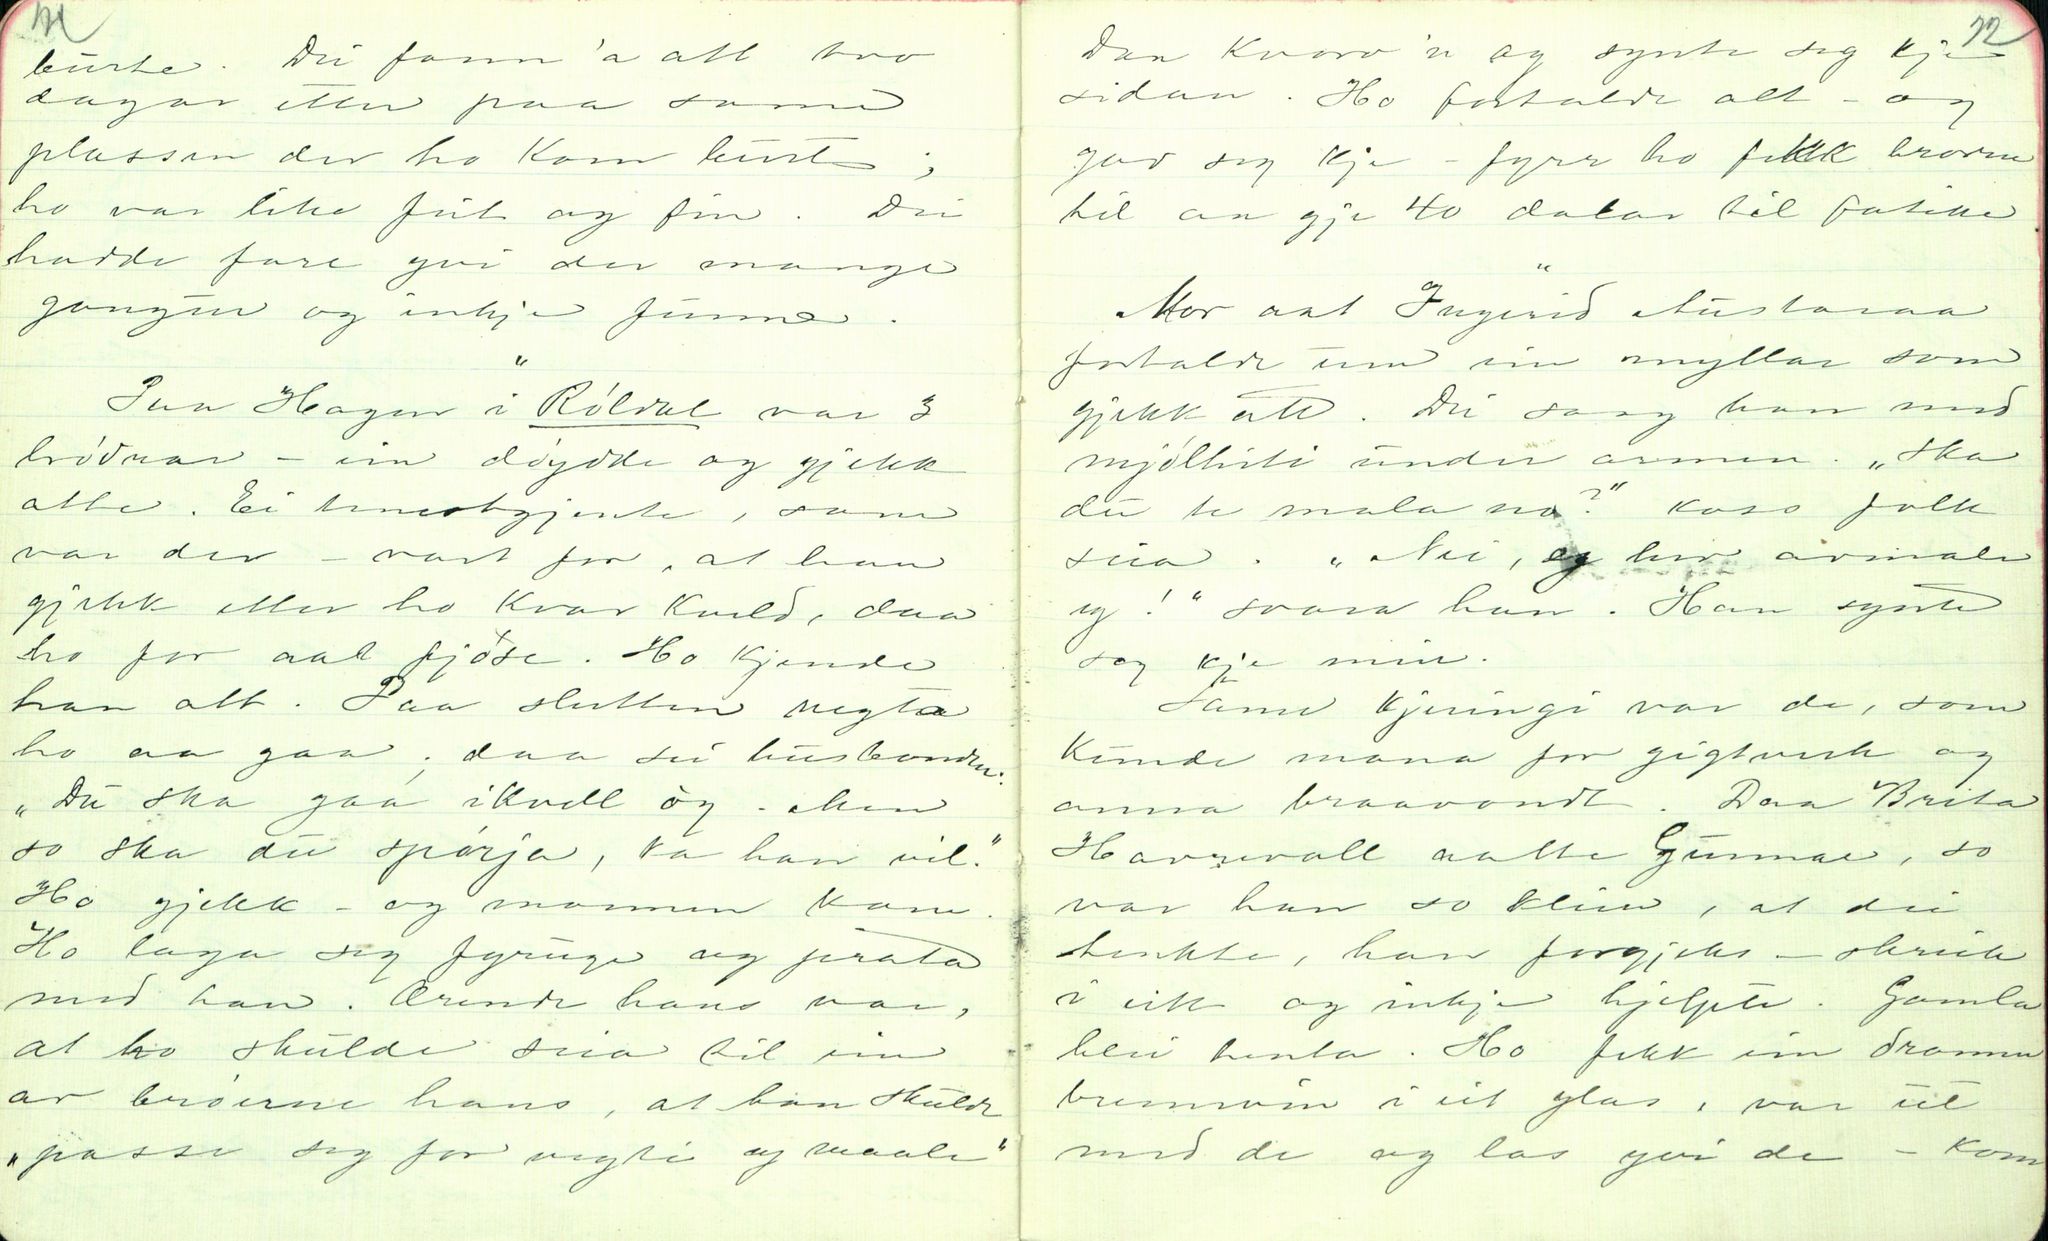 burte. Dei fann 'a att tvo
dagar etter paa same
plassen der ho kom burt;
ho var like fut og fin. Dei
hadde fare yvi der mange
gongur og inkje funne.
"
Paa Hagen i Róldal var 3
bródrar – ein dóydde og gjekk
atte. Ei tenestgjente, som
var der – vart for, at han
gjekk etter ho kvar kveld, daa
ho for aat fjóse. Ho kjende
han att. Paa slutten negta
ho aa gaa; daa sei husbonden:
"Du ska gaa ikvell óg. Men
so ska du spórja, ka han vil."
Ho gjekk – og mannen kom.
Ho laga seg fyruge og prata
med han. Ærende hans var,
at ho skulde seia til ein
av bróerne hans, at han skulde
"passe seg for vegti og maale"
72
Dan kvarv 'n og synte seg kje
sidan. Ho fortalde alt – og
gav seg kje – fyrr ho fekk broren
til aa gje 40 dalar til fatike
"
Mor aat Ingerid Austaraa
fortalde um ein myllar som
gjekk att. Dei saag han med
mjólbiti under armen. "Ska
du te mala no?" kass folk
seia. "Nei, eg her avmale
eg!" svara han. Han synte
seg kje meir.
Same kjeringi var de, som
kunde mana for gigtverk og
anna braavondt. Daa Brita
Havrevoll aatte Gunnar, so
var han so klein, at dei
tenkte, han forgjeks – skreik
i eit og inkje hjelpte. Gamla
blei henta. Ho fekk ein dramm
brennvin i eit glas, var ut
med de og las yvi de – kom